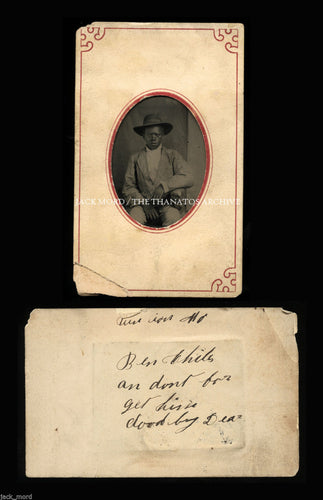 JACK MORD / THE THANATOS ARCHIVE
Ben Chiles
an dont for
get him
Good by Dear
jack_mord